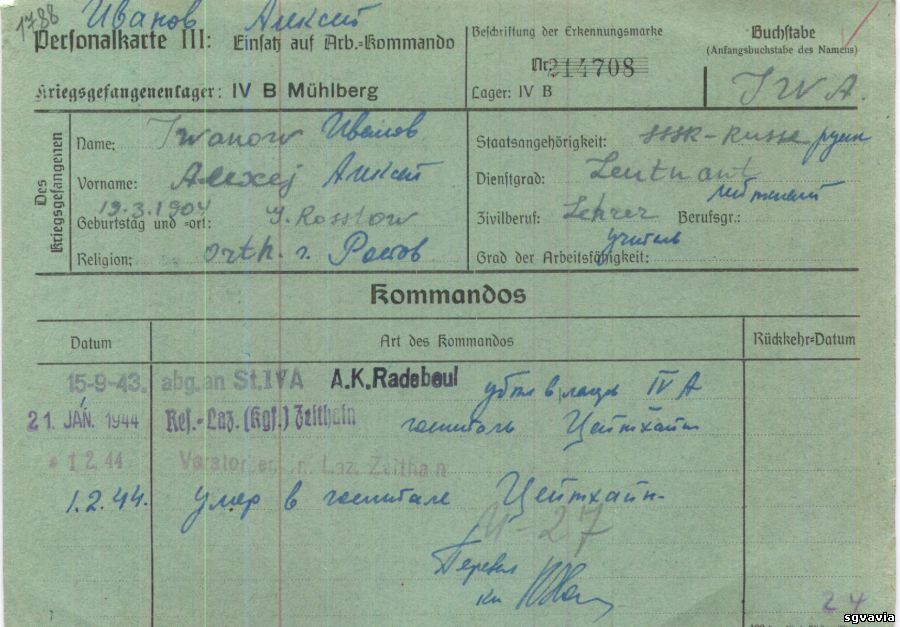 1788 Иванов Алексей
Personalkarte III: Einsatz auf Arb.=Kommando
Beschriftung der Erkennungsmarke
Nr. 214708
Lager: IV B
Buchstabe
(Anfangsbuchstabe des Namens)
IWA.
Kriegsgefangenenlager: IV B Mühlberg
Des Kriegsgefangenen
Name: Iwanow Иванов
Vorname: Alexej Алексей
19.3.1904 G. Rosstow
Geburtstag und =ort:
Religion: orth. г. Ростов
Staatsangehörigkeit: SSSR-Russe русск
Dienstgrad: Leutnant
лейтенант
Zivilberuf: Lehrer Berufsgr.:
учитель
Grad der Arbeitsfähigkeit:
Kommandos
Datum Art des Kommandos Rückkehr=Datum
15-9-43. abg. an St. IV A A.K. Radebeul убыл в лагерь IV A
21. JAN. 1944 Res.-Laz. (Kgf.) Zeithain госпиталь Цейтхайн
*1 2. 44 Verstorben Laz. Zeithain
1.2.44. умер в госпитале Цейтхайн
27
Перевел
24
sgvavia